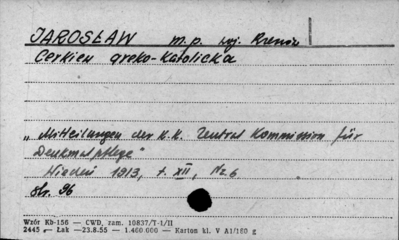 JAROSŁAW m.p. woj. Rzesz.
Cerkiew greko-katolicka
„Mitteilungen der K.K. Zentral Kommission für
Denkmalpflege"
Wiedeń 1913, t. XII, Nr 6
str. 96
Wzór Kb-156 — CWD, zam. 10837/T-1/II
2445 — Łak —23.8.55 — 1.460.000 — Karton kl. V A1/160 g